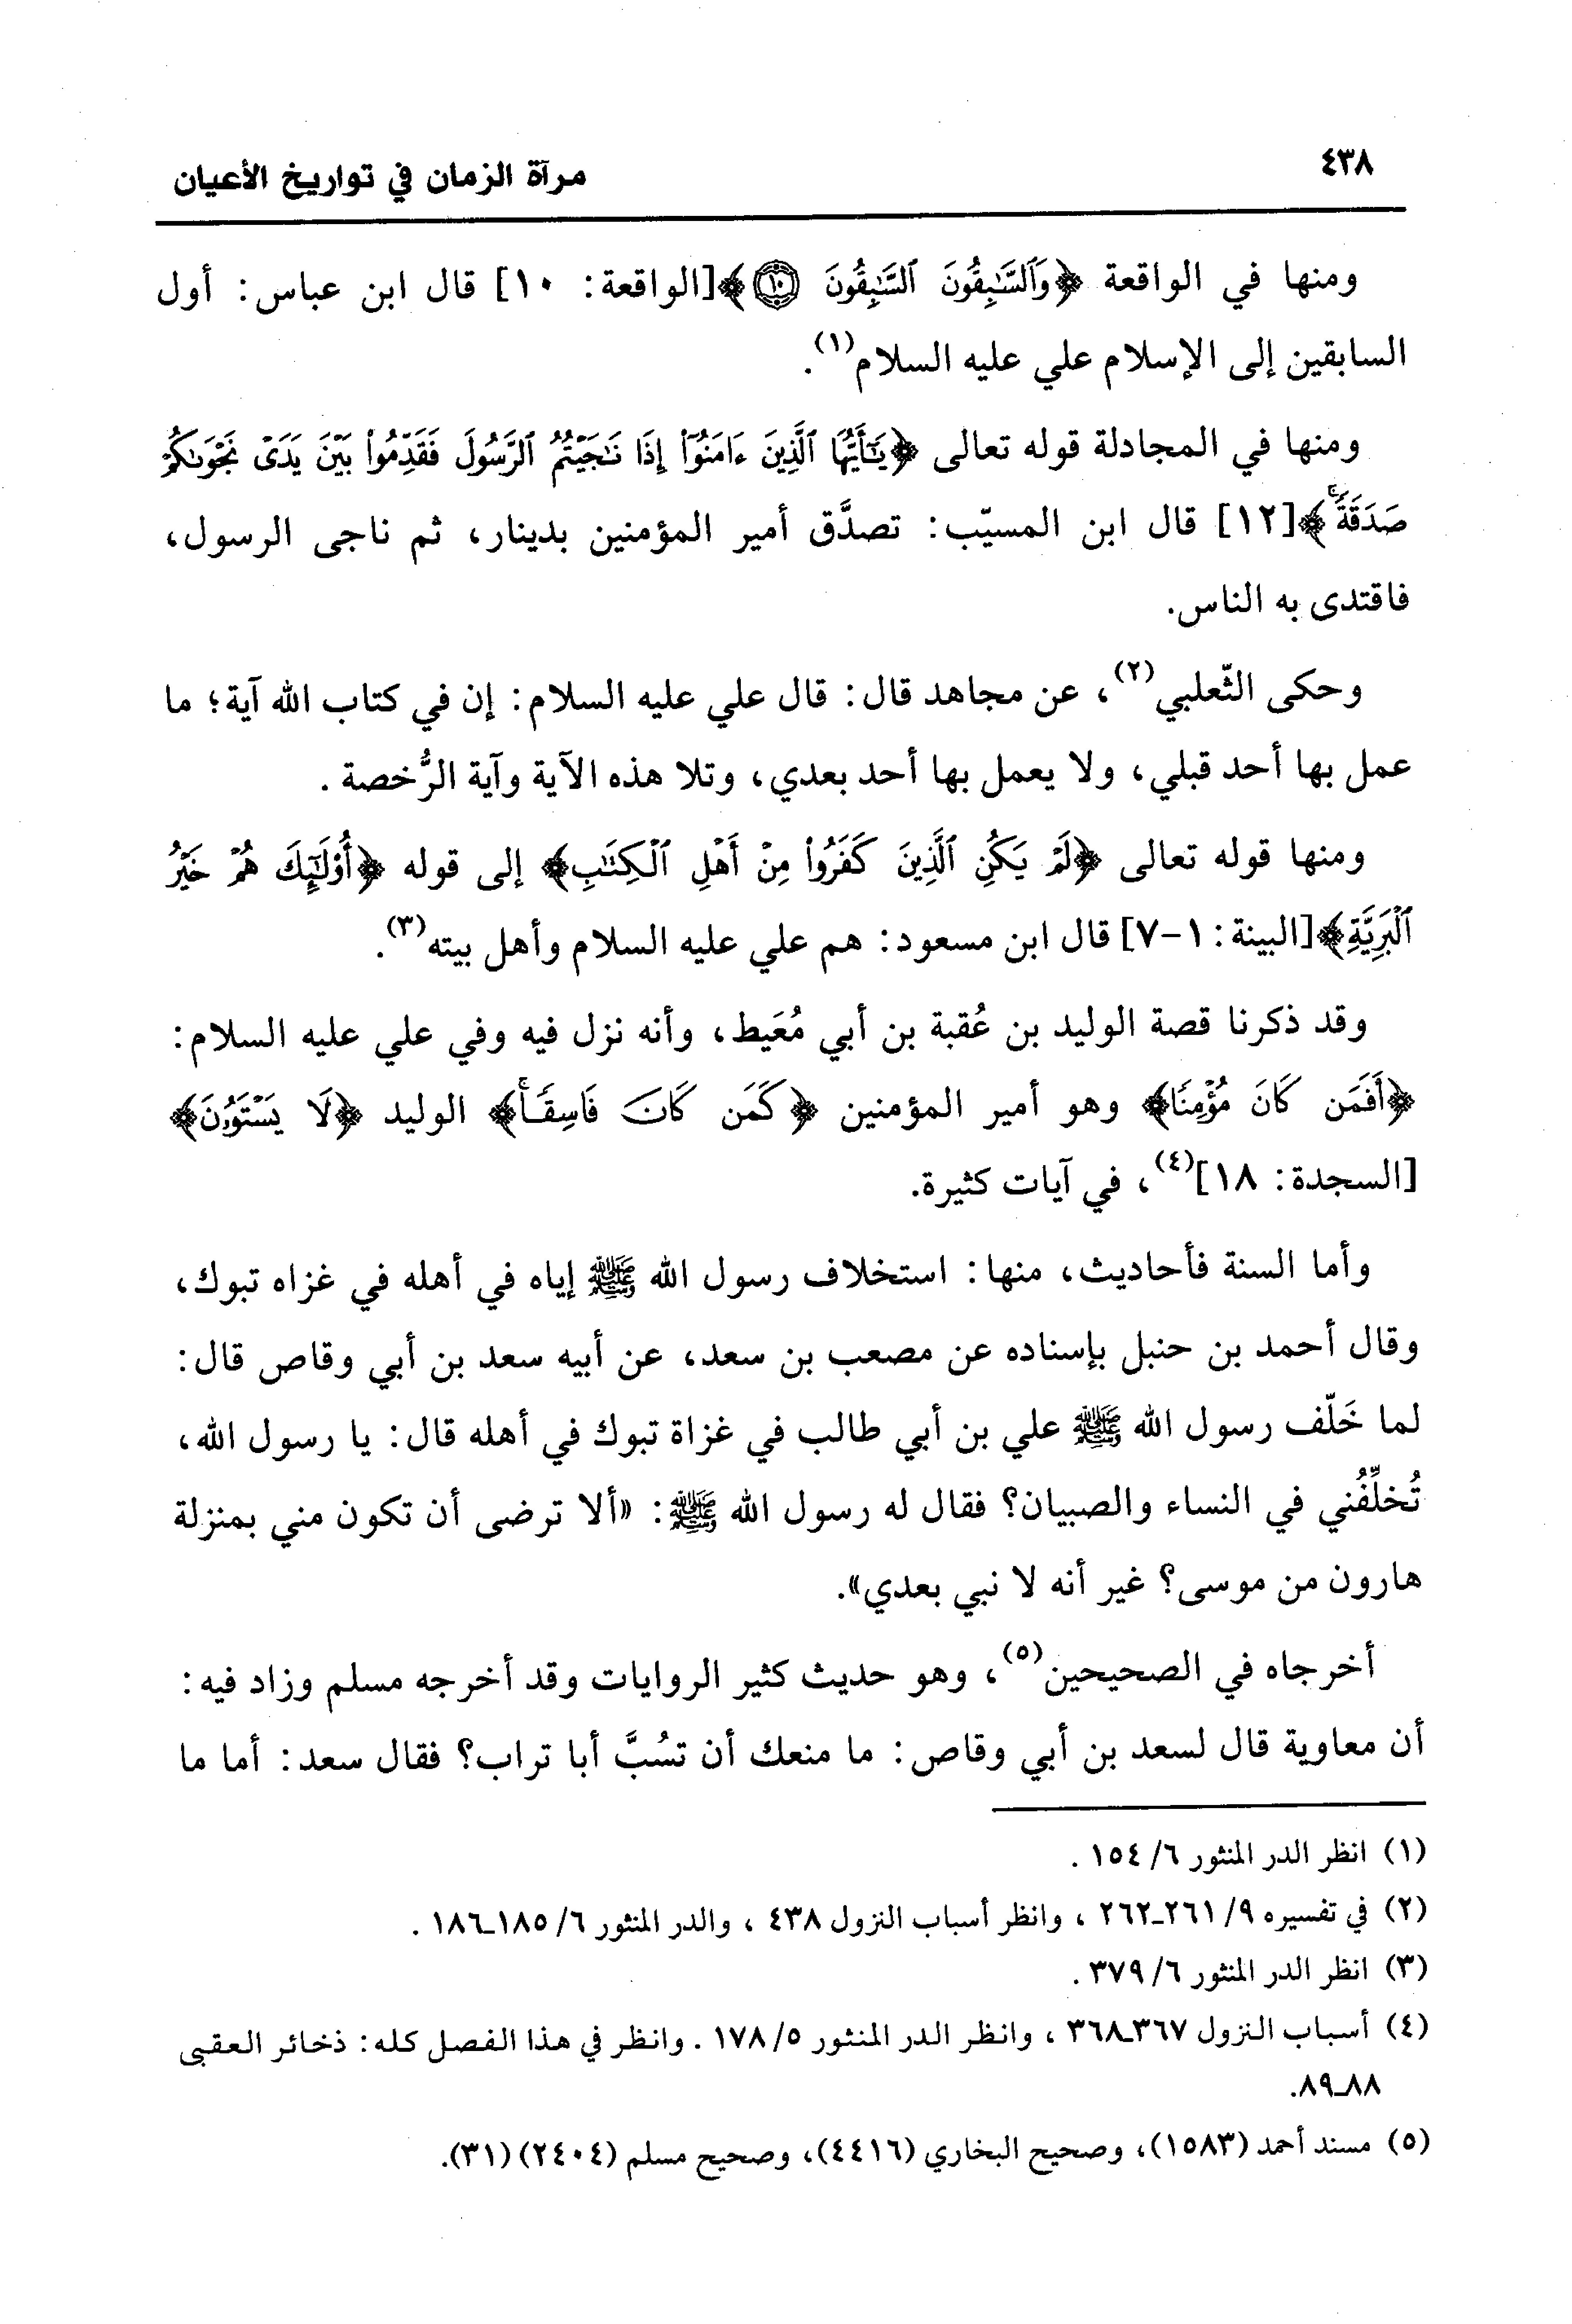 ٤٣٨
مرآة الزمان في تواريخ الأعيان
ومنها في الواقعة ﴿وَٱلسَّٰبِقُونَ ٱلسَّٰبِقُونَ ۝١٠﴾ [الواقعة: ١٠] قال ابن عباس: أول
السابقين إلى الإسلام علي عليه السلام(١).
ومنها في المجادلة قوله تعالى ﴿يَٰٓأَيُّهَا ٱلَّذِينَ ءَامَنُوٓا۟ إِذَا نَٰجَيْتُمُ ٱلرَّسُولَ فَقَدِّمُوا۟ بَيْنَ يَدَىْ نَجْوَىٰكُمْ
صَدَقَةً ۚ﴾ [١٢] قال ابن المسيّب: تصدَّق أمير المؤمنين بدينار، ثم ناجى الرسول،
فاقتدى به الناس.
وحكى الثّعلبي(٢)، عن مجاهد قال: قال علي عليه السلام: إن في كتاب الله آية؛ ما
عمل بها أحد قبلي، ولا يعمل بها أحد بعدي، وتلا هذه الآية وآية الرُّخصة.
ومنها قوله تعالى ﴿لَمْ يَكُنِ ٱلَّذِينَ كَفَرُوا۟ مِنْ أَهْلِ ٱلْكِتَٰبِ﴾ إلى قوله ﴿أُو۟لَٰٓئِكَ هُمْ خَيْرُ
ٱلْبَرِيَّةِ﴾ [البينة: ١-٧] قال ابن مسعود: هم علي عليه السلام وأهل بيته(٣).
وقد ذكرنا قصة الوليد بن عُقبة بن أبي مُعَيط، وأنه نزل فيه وفي علي عليه السلام:
﴿أَفَمَن كَانَ مُؤْمِنًا﴾ وهو أمير المؤمنين ﴿كَمَن كَانَ فَاسِقًا ۚ﴾ الوليد ﴿لَا يَسْتَوُۥنَ﴾
[السجدة: ١٨](٤)، في آيات كثيرة.
وأما السنة فأحاديث، منها: استخلاف رسول الله ﷺ إياه في أهله في غزاه تبوك،
وقال أحمد بن حنبل بإسناده عن مصعب بن سعد، عن أبيه سعد بن أبي وقاص قال:
لما خَلّف رسول الله ﷺ علي بن أبي طالب في غزاة تبوك في أهله قال: يا رسول الله،
تُخلِّفُني في النساء والصبيان؟ فقال له رسول الله ﷺ: «ألا ترضى أن تكون مني بمنزلة
هارون من موسى؟ غير أنه لا نبي بعدي».
أخرجاه في الصحيحين(٥)، وهو حديث كثير الروايات وقد أخرجه مسلم وزاد فيه:
أن معاوية قال لسعد بن أبي وقاص: ما منعك أن تسُبَّ أبا تراب؟ فقال سعد: أما ما
(١) انظر الدر المنثور ٦/ ١٥٤ .
(٢) في تفسيره ٩/ ٢٦١ـ٢٦٢ ، وانظر أسباب النزول ٤٣٨ ، والدر المنثور ٦/ ١٨٥ـ١٨٦ .
(٣) انظر الدر المنثور ٦/ ٣٧٩ .
(٤) أسباب النزول ٣٦٧ـ٣٦٨ ، وانظر الدر المنثور ٥/ ١٧٨ . وانظر في هذا الفصل كله: ذخائر العقبى
٨٨ـ٨٩.
(٥) مسند أحمد (١٥٨٣)، وصحيح البخاري (٤٤١٦)، وصحيح مسلم (٢٤٠٤) (٣١).